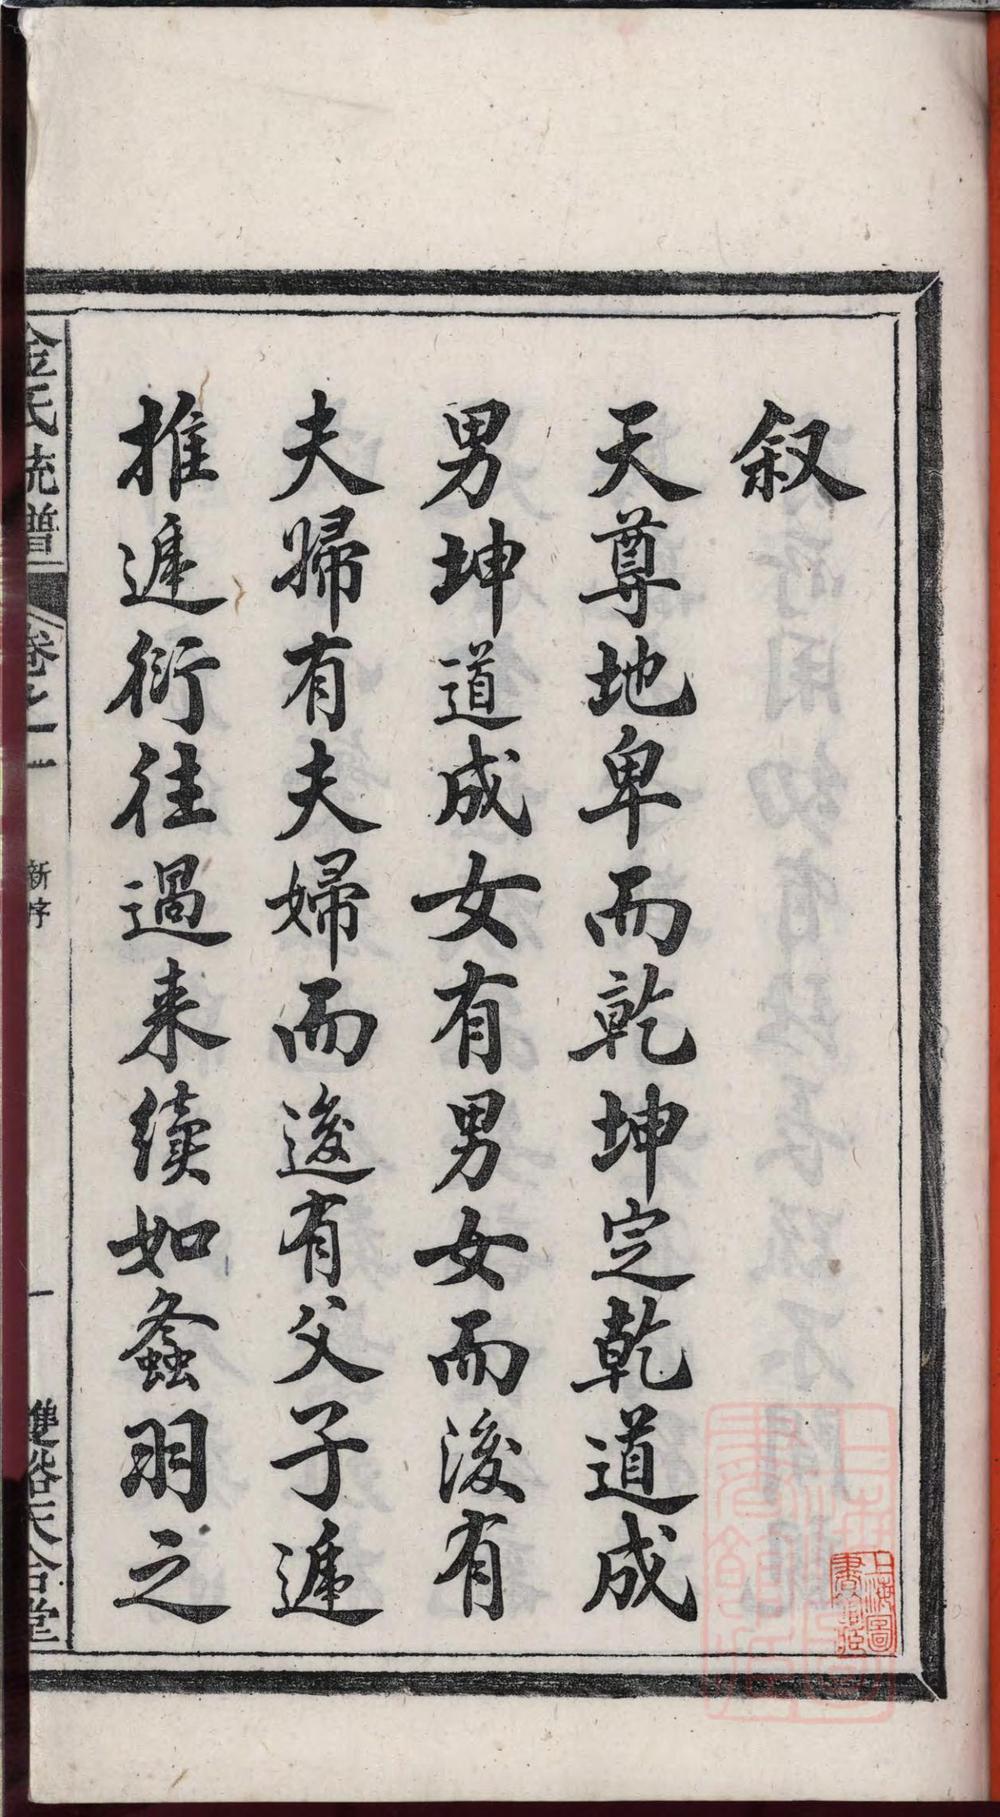 叙
天尊地卑而乾坤定乾道成
男坤道成女有男女而後有
夫婦有夫婦而後有父子遞
推遞衍往過来續如螽羽之
金氏統譜
卷之一
新序
一
雙谿大合堂
上海圖
書館藏